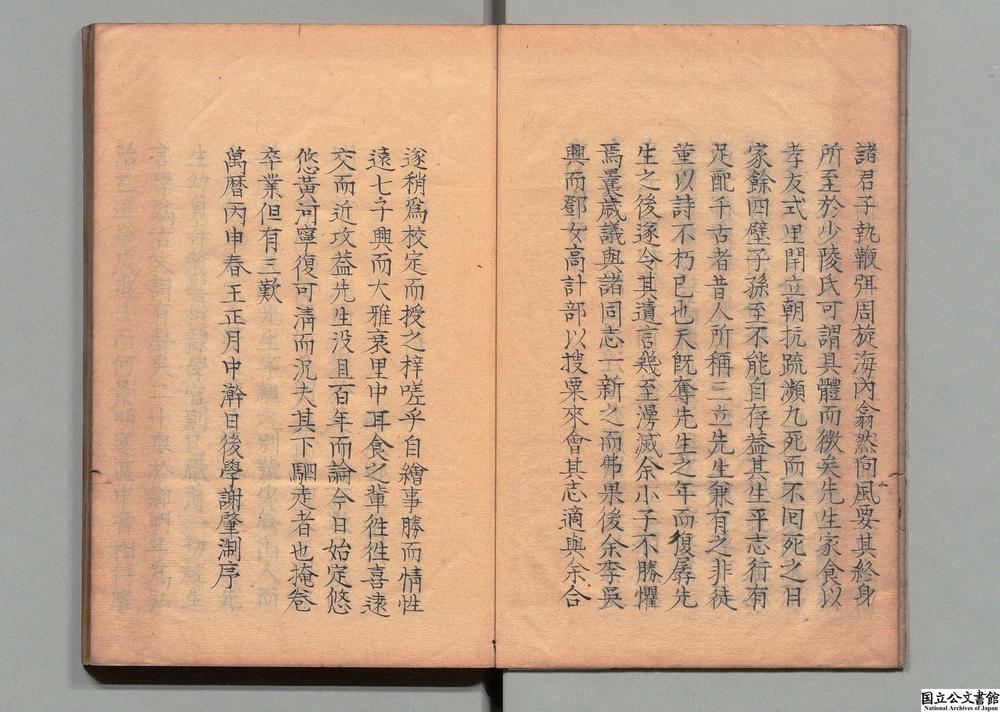 諸君子執鞭弭周旋海內翕然向風要其終身
所至於少陵氏可謂具體而微矣先生家食以
孝友式里閈立朝抗疏瀕九死而不回死之日
家餘四壁子孫至不能自存益其生平志行有
足配千古者昔人所稱三立先生兼有之非徒
董以詩不朽已也天既奪先生之年而復孱先
生之後遂令其遺言幾至漫滅余小子不勝懼
焉曩歲議與諸同志一新之而弗果後余李吳
興而鄧女高計部以搜粟來會其志適與余合
遂稍爲校定而授之梓嗟乎自繪事勝而情性
遠七子興而大雅衰里中耳食之輩徃徃喜遠
交而近攻益先生没且百年而論今日始定悠
悠黃河寧復可清而況夫其下駟走者也掩卷
卒業但有三歎
萬曆丙申春王正月中澣日後學謝肇淛序
国立公文書館
National Archives of Japan